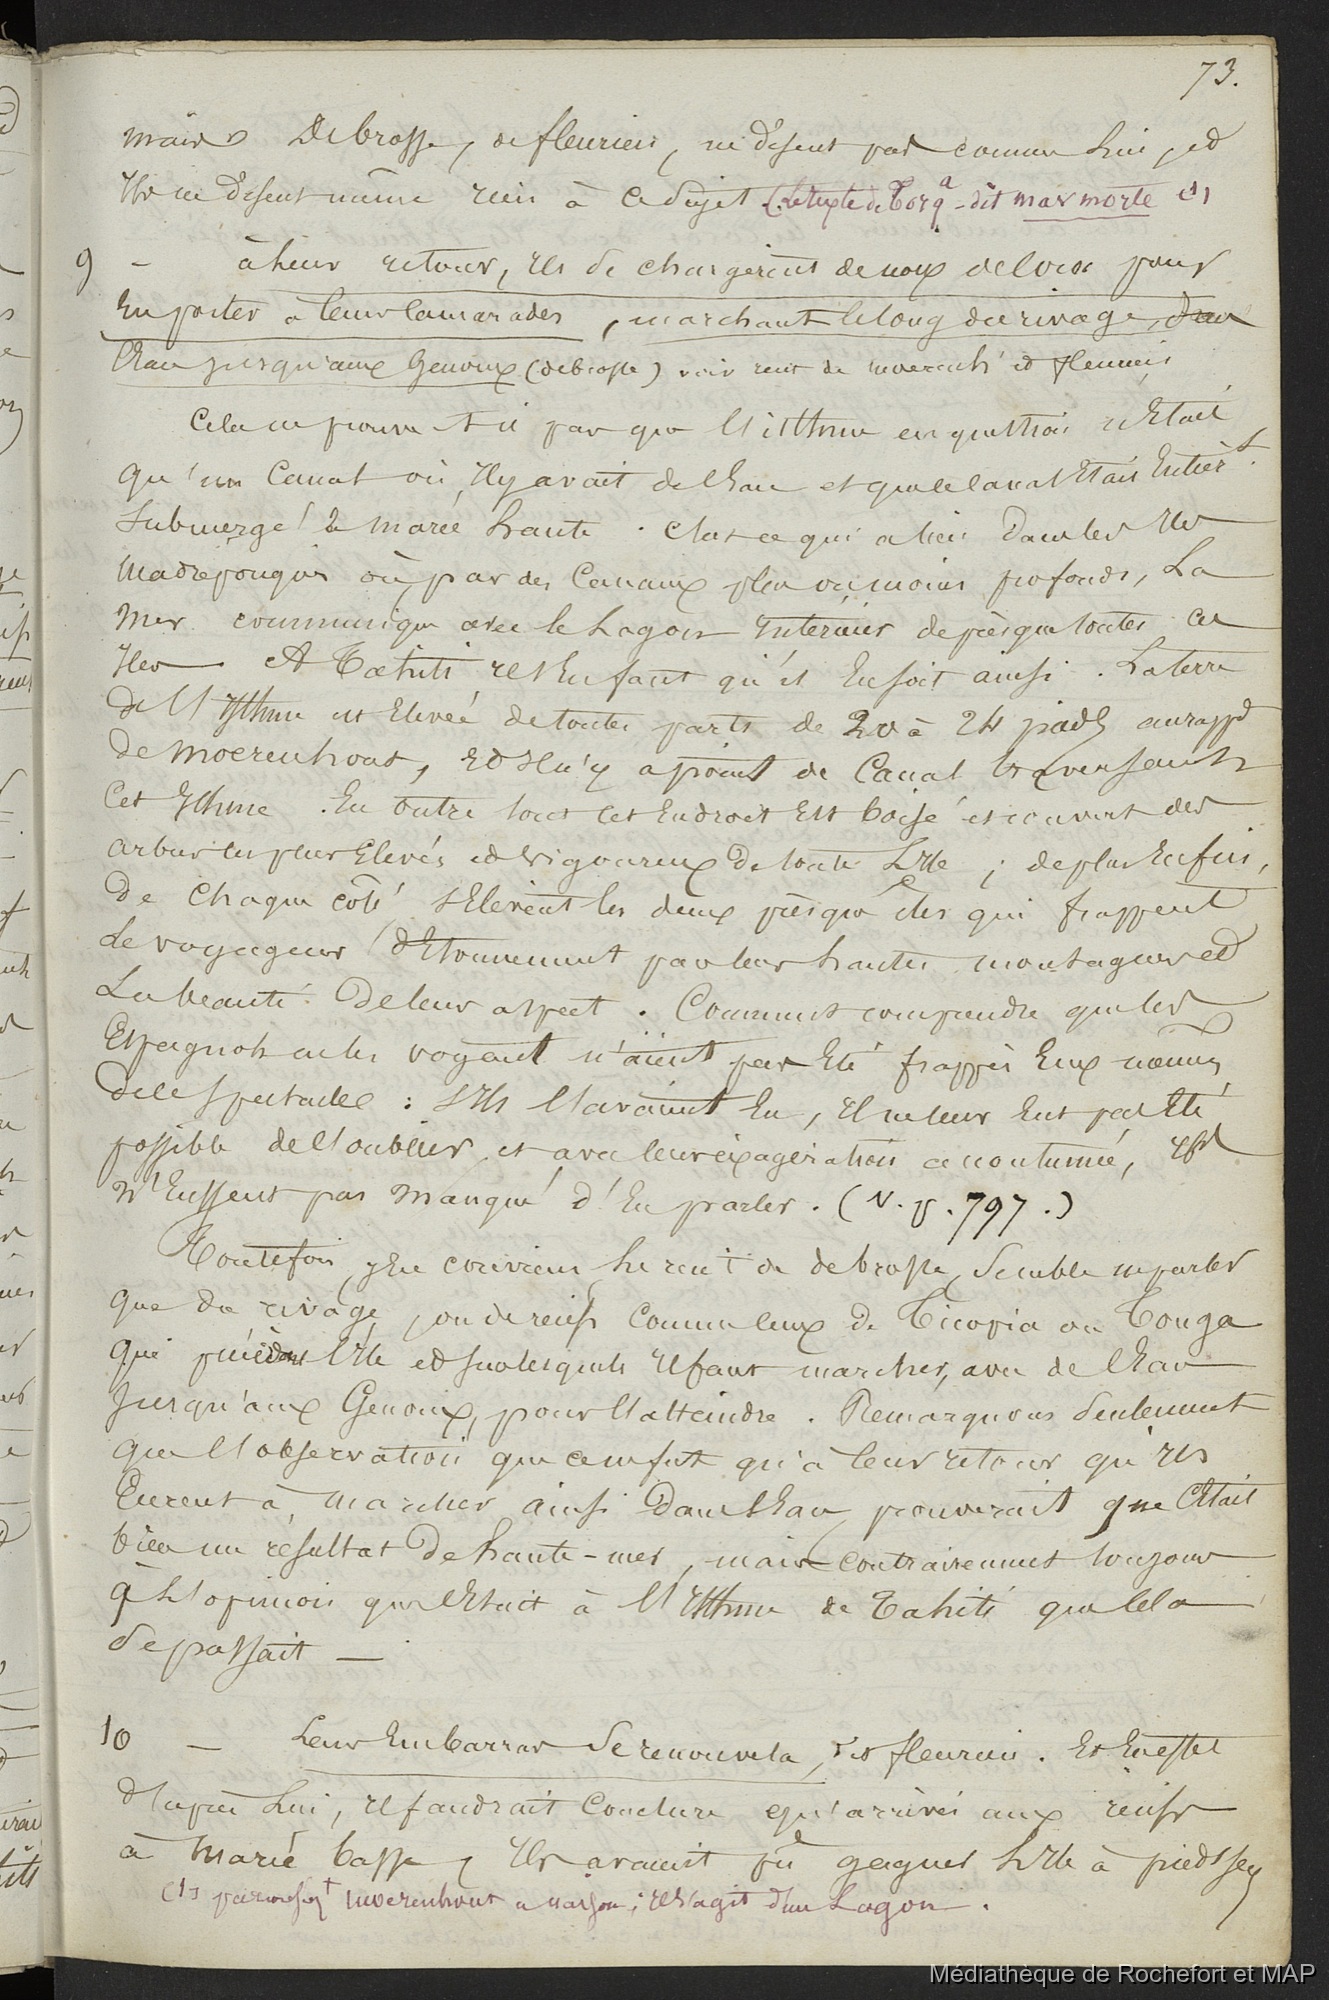 73.
mais Debrosse, de fleurieu, ne disent pas comme lui, et
Ils ne disent même rien à ce sujet (Le texte de Torq.a dit mar morte (1)
9 - à leur retour, ils se chargèrent de noix de coco pour
En porter à leurs camarades, marchant le long du rivage, dans
l'Eau jusqu'aux Genoux (debrosse) voir récit de moerenh.t et fleurieu
Cela ne prouve-t-il pas que l'isthme en question n'Etait
qu'un Canal où, Il y avait de l'Eau et que le canal Etait Entièr.t
Submergé à marée haute. C'est ce qui a lieu dans les Iles
madréporiques où, par des Canaux plus ou moins profonds, La
mer communique avec le Lagon Intérieur de presque toutes ces
Iles — A Taehiti il s'En faut qu'il En soit ainsi. La terre
de l'Isthme est Elevée de toutes parts de 20 à 24 pieds au rapp.t
de moerenhout, Et Il n'y a point de Canal traversant
Cet Isthme. En outre tout cet Endroit Est boisé et couvert des
arbres les plus Elevés et vigoureux de toute L'Ile; de plus Enfin,
De chaque côté s'Elèvent les deux presqu'iles qui frappent
Le voyageur d'Etonnement par leurs hautes montagnes et
La beauté de leur aspect. Comment comprendre que les
Espagnols en les voyant n'aient pas Eté frappés Eux mêmes
de ce spectacle: s'Ils l'avaient Eu, Il ne leur Eut pas Eté
possible de l'oublier et avec leur exagération accoutumée, Ils
N'Eussent pas manqué d'En parler. (v. p. 797.)
Toutefois, j'En conviens, le récit de debrosse, semble ne parler
que du rivage, ou de récifs comme ceux de Ticopia ou Tonga
qui précèdent l'Ile et sur lesquels Il faut marcher, avec de l'Eau
Jusqu'aux Genoux, pour l'atteindre. Remarquons seulement
que l'observation que ce ne fut qu'à leur retour qu'ils
Eurent à marcher ainsi dans l'Eau, prouverait que c'Etait
bien un résultat de haute-mer, mais contrairement toujours
à l'opinion que c'Etait à l'Isthme de Tahiti que cela
se passait —
10 — Leur Embarras se renouvela, dit fleurieu. Et En effet
d'après Lui, Il faudrait Conclure qu'arrivés aux récifs
à marée basse, Ils avaient pu gagner L'Ile à pied sec,
(1) Moerenhout a raison; Il s'agit d'un Lagon.
Médiathèque de Rochefort et MAP